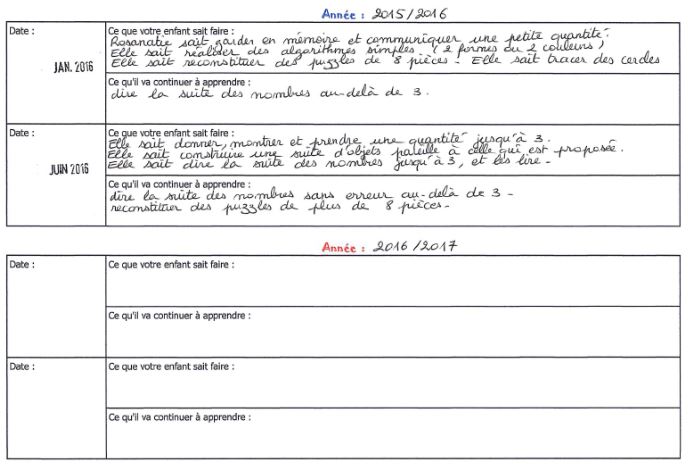 Année : 2015/2016
Date :
JAN. 2016
Ce que votre enfant sait faire :
Rosanatie sait garder en mémoire et communiquer une petite quantité.
Elle sait réaliser des algorithmes simples. (2 formes ou 2 couleurs)
Elle sait reconstituer des puzzles de 8 pièces - Elle sait tracer des cercles
Ce qu'il va continuer à apprendre :
dire la suite des nombres au-delà de 3.
Date :
JUIN 2016
Ce que votre enfant sait faire :
Elle sait donner, montrer et prendre une quantité jusqu'à 3.
Elle sait construire une suite d'objets pareille à celle qui est proposée.
Elle sait dire la suite des nombres jusqu'à 3, et les lire -
Ce qu'il va continuer à apprendre :
dire la suite des nombres sans erreur au-delà de 3 -
reconstituer des puzzles de plus de 8 pièces -
Année : 2016/2017
Date :
Ce que votre enfant sait faire :
Ce qu'il va continuer à apprendre :
Date :
Ce que votre enfant sait faire :
Ce qu'il va continuer à apprendre :